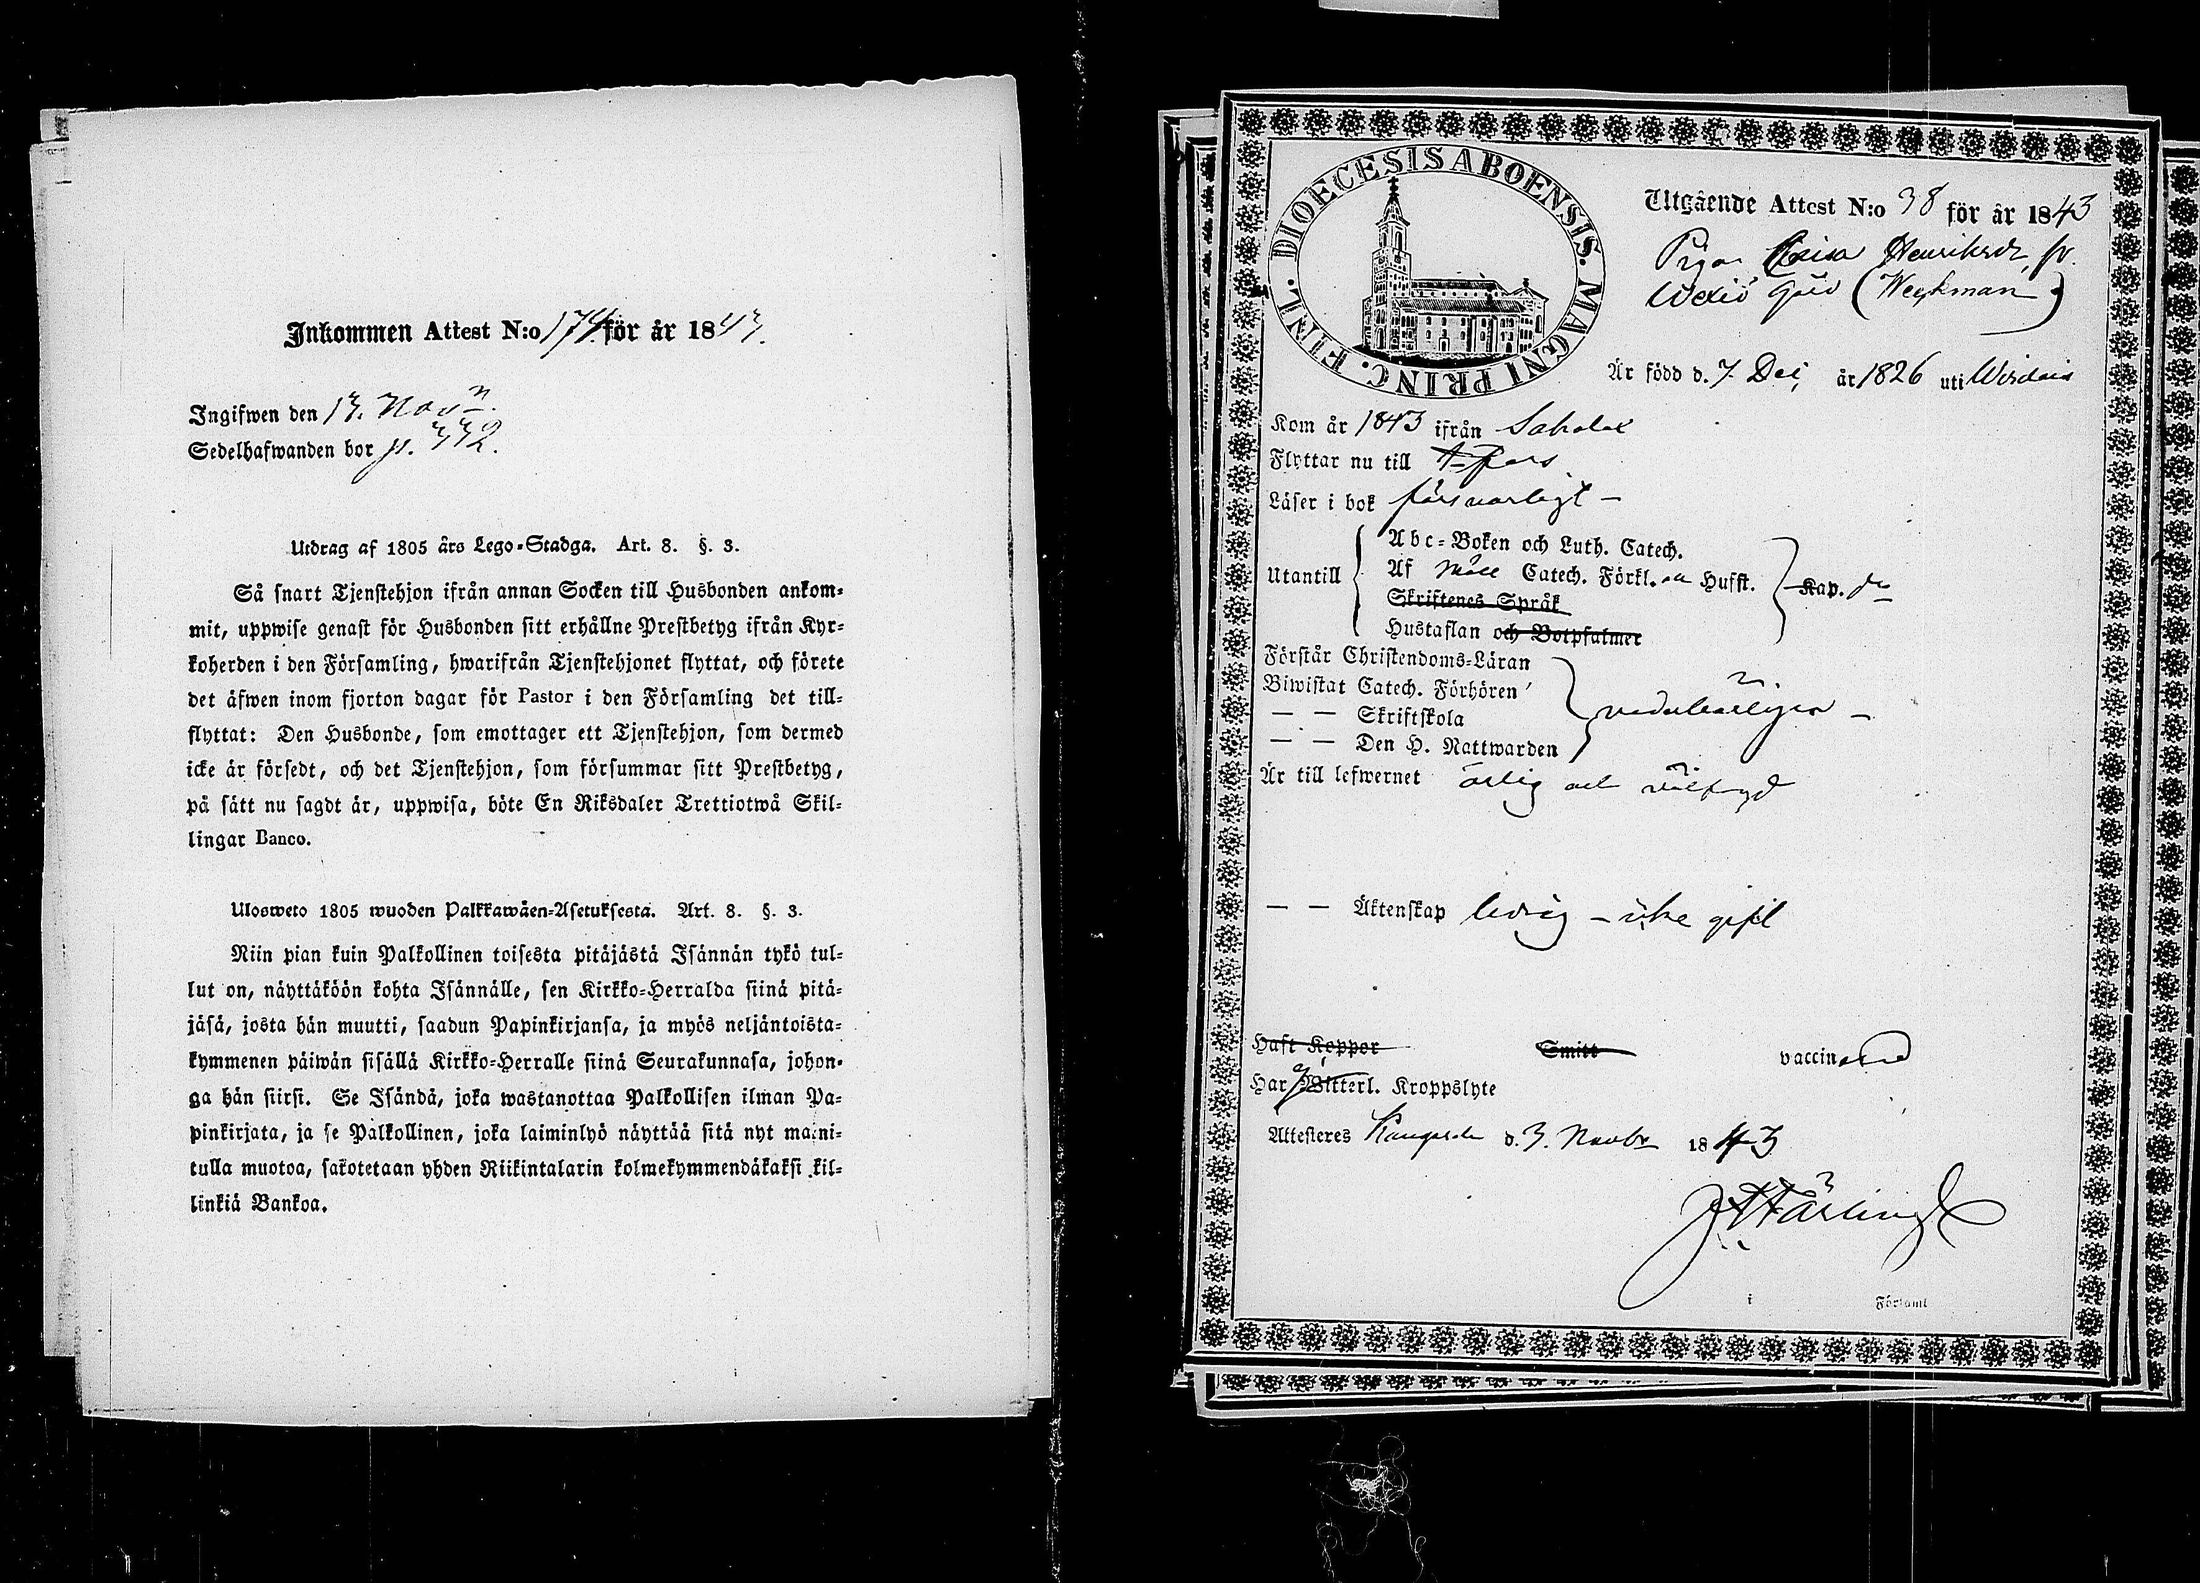 Inkommen Attest N:o 174 för år 1843.
Ingifwen den 13. Nov.
Sedelhafwanden bor p. 332.
Utdrag af 1805 års Lego-Stadga. Art. 8. §. 3.
Så snart Tjenstehjon ifrån annan Socken till Husbonden ankom-
mit, uppwise genast för Husbonden sitt erhållne Prestbetyg ifrån Kyr-
koherden i den Församling, hwarifrån Tjenstehjonet flyttat, och förete
det äfwen inom fjorton dagar för Pastor i den Församling det till-
flyttat: Den Husbonde, som emottager ett Tjenstehjon, som dermed
icke är försedt, och det Tjenstehjon, som försummar sitt Prestbetyg,
på sätt nu sagdt är, uppwisa, böte En Riksdaler Trettiotwå Skil-
lingar Banco.
Ulosweto 1805 wuoden Palkkawäen-Asetuksesta. Art. 8. §. 3.
Niin pian kuin Palkollinen toisesta pitäjästä Isännän tykö tul-
lut on, näyttäköön kohta Isännälle, sen Kirkko-Herralda siinä pitä-
jäsä, josta hän muutti, saadun Papinkirjansa, ja myös neljäntoista-
kymmenen päiwän sisällä Kirkko-Herralle siinä Seurakunnasa, johon-
ga hän siirsi. Se Isändä, joka wastanottaa Palkollisen ilman Pa-
pinkirjata, ja se Palkollinen, joka laiminlyö näyttää sitä nyt maini-
tulla muotoa, sakotetaan yhden Riikintalarin kolmekymmendäkaksi kil-
linkiä Bankoa.
DIOECESIS ABOENSIS. MAGNI PRINC. FINL.
Utgående Attest N:o 38 för år 1843
Pigan Henriksdr fr.
Wexiö Gård (Weckman)
Är född d. 7. Dec. år 1826 uti Wirdois
Kom år 1843 ifrån Sahalax
Flyttar nu till T-fors
Läser i bok försvarligt –
Utantill
Abc-Boken och Luth. Catech.
Af Möll Catech. Förkl. Hufst. Kap.
Skriftenes Språk
Hustaflan och Botpsalmer
Förstår Christendoms-Läran
Biwistat Catech. Förhören
— — Skriftskola vederbörligen –
— — Den H. Nattwarden
Är till lefwernet ärlig och välfrejd
— — Äktenskap ledig – icke gift
Haft Koppor Smitt vaccinerad
Har Witterl. Kroppslyte
Attesteres Kangasala d. 3. Novbr 1843
i Församl